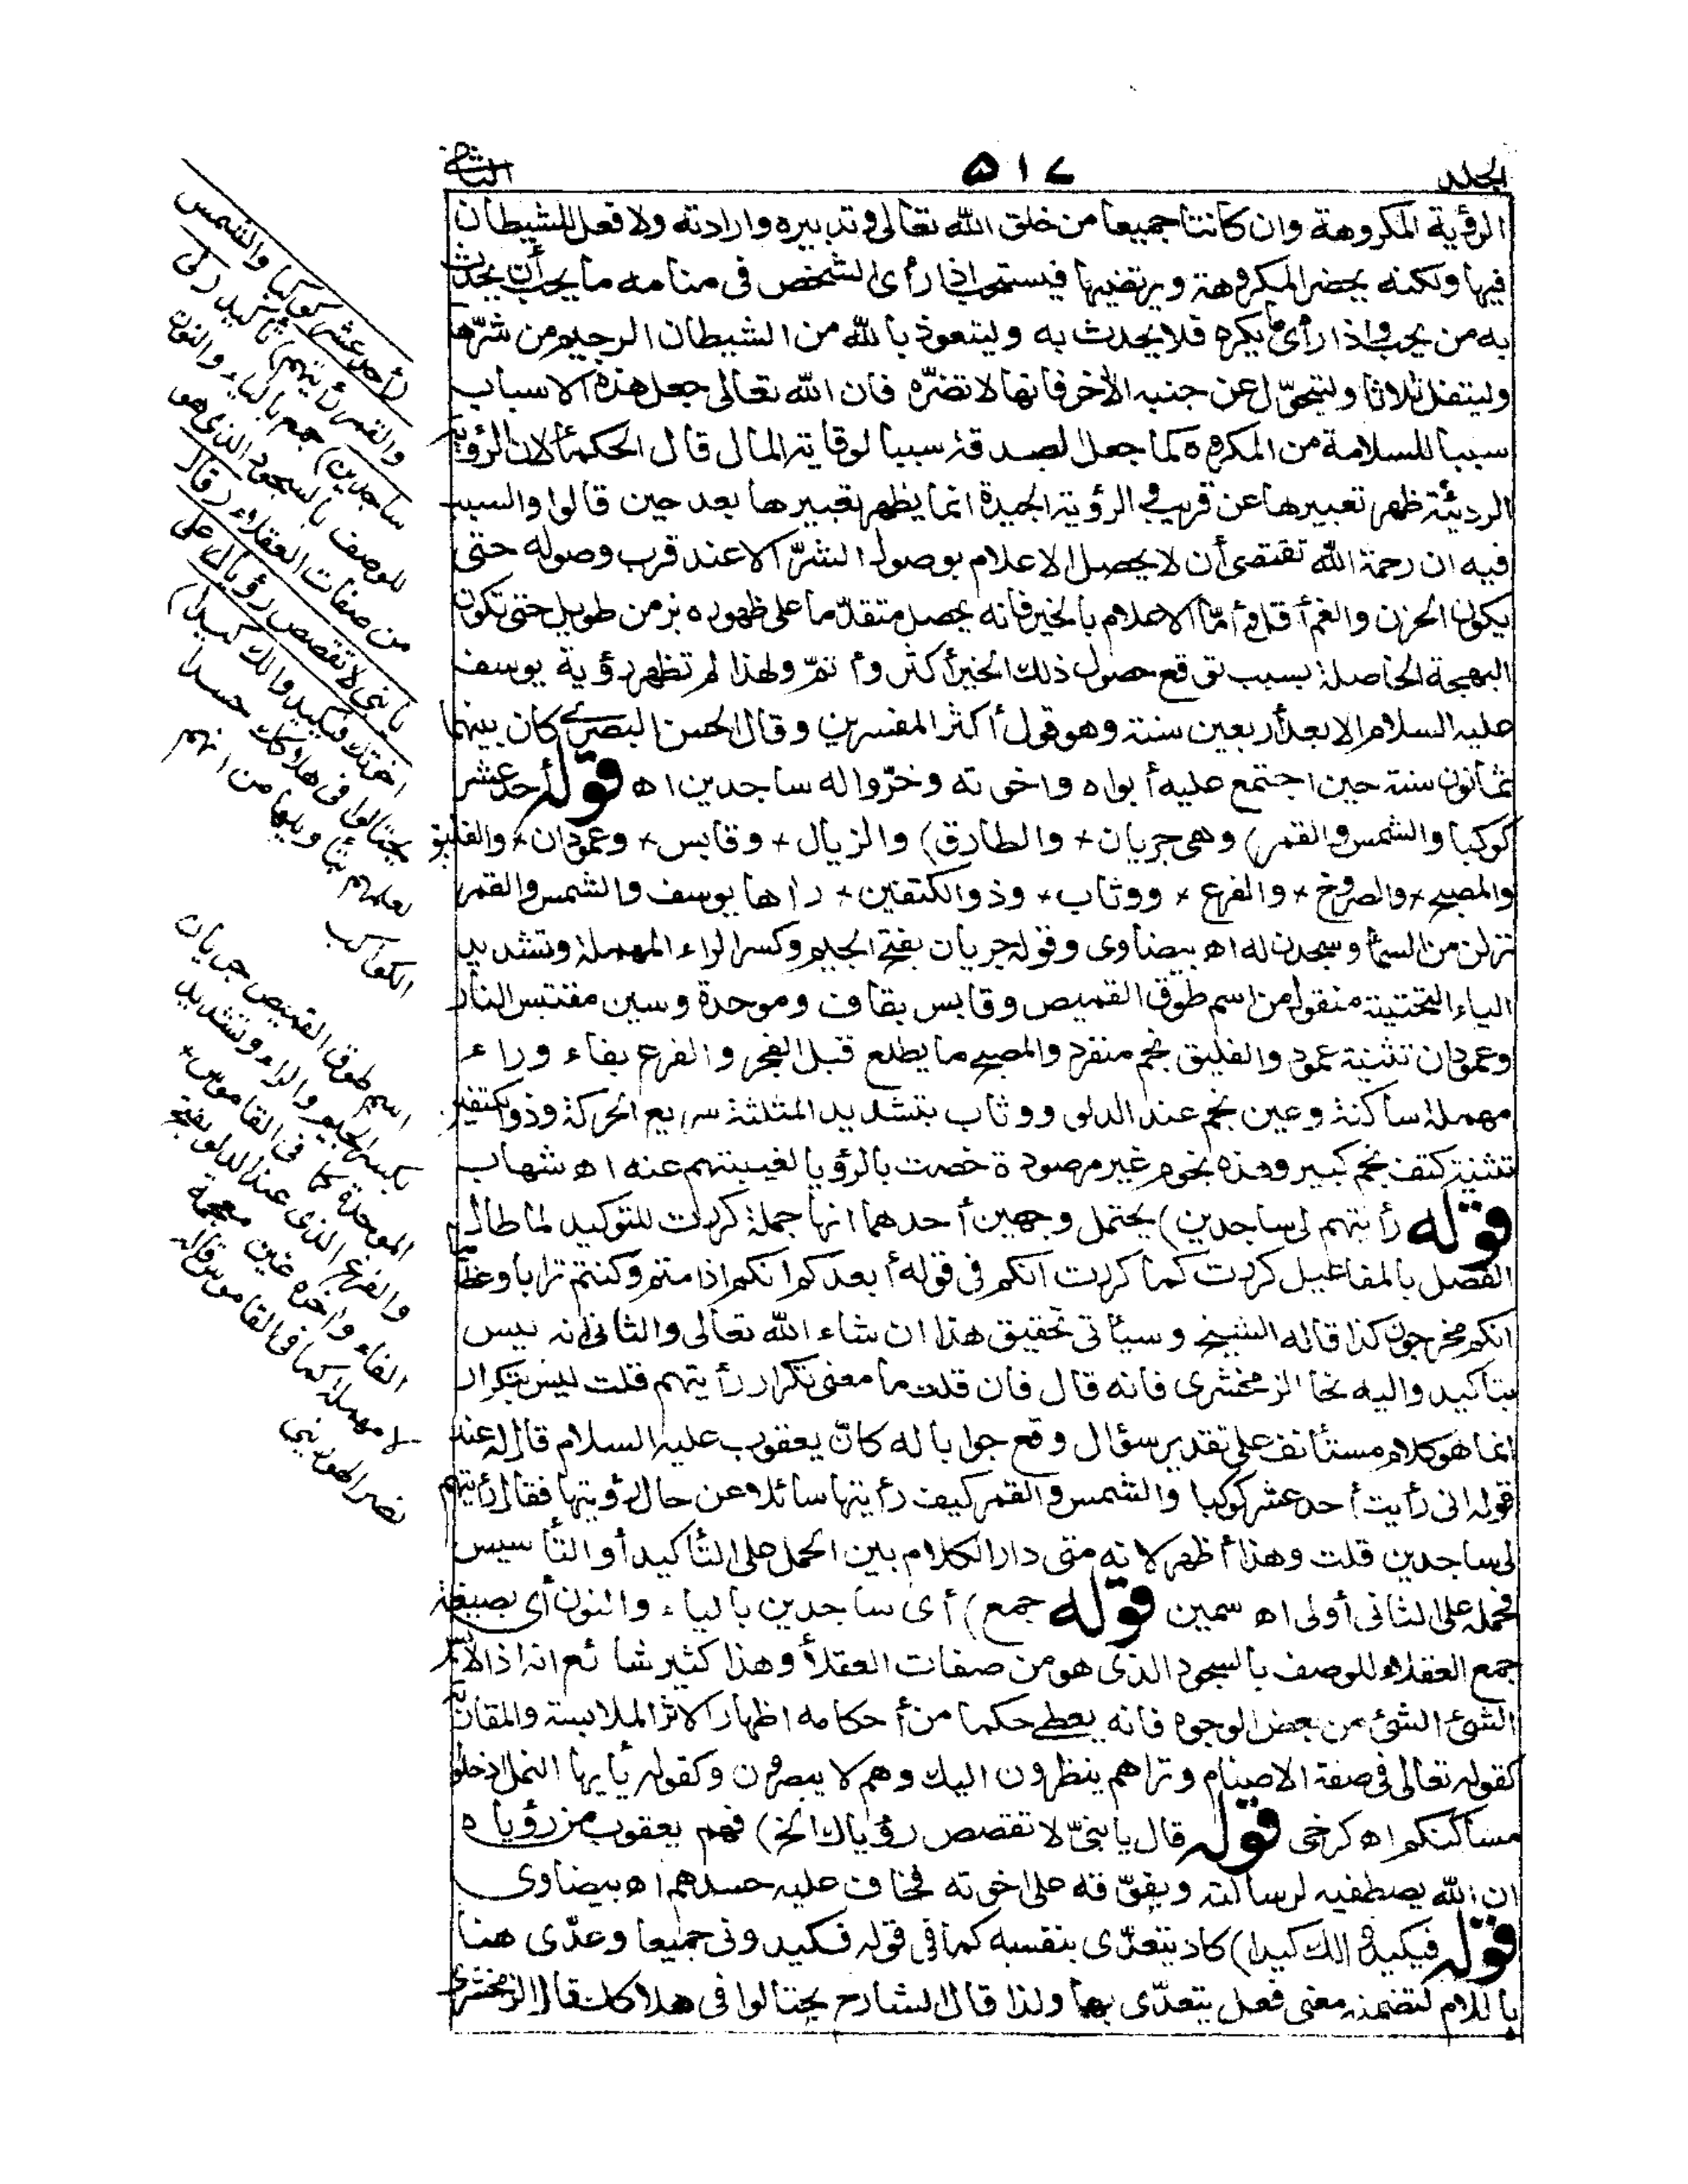 الجلد
٥١٧
الثانى
الرؤية المكروهة وان كانتا جميعا من خلق الله تعالى وتدبيره وارادته ولا فعل للشيطان
فيها ولكنه يحضر المكروهة ويرتضيها فيستحب اذا رأى الشخص فى منامه ما يحب أن يحدث
به من يحب واذا رأى ما يكره فلا يحدث به وليتعوذ بالله من الشيطان الرجيم من شرّها
وليتفل ثلاثا وليتحوّل عن جنبه الأخر فانها لا تضرّه فان الله تعالى جعل هذه الاسباب
سببا للسلامة من المكروه كما جعل الصدقة سببا لوقاية المال قال الحكمأ لان الرؤية
الرديئة ظهر تعبيرها عن قريب والرؤية الجيدة انما يظهر تعبيرها بعد حين قالوا والسبب
فيه ان رحمة الله تقتضى أن لا يحصل الاعلام بوصول الشرّ الا عند قرب وصوله حتى
يكون الحزن والغم أقل وأمّا الاعلام بالخير فانه يحصل متقدّما على ظهوره بزمن طويل حتى تكون
البهجة الحاصلة بسبب توقع حصول ذلك الخير أكثر وأتمّ ولهذا لم تظهر رؤية يوسف
عليه السلام الا بعد أربعين سنة وهو قول أكثر المفسرين وقال الحسن البصرى كان بينهما
ثمانون سنة حين اجتمع عليه أبواه واخوته وخرّوا له ساجدين اه قوله أحد عشر
كوكبا والشمس والقمر) وهى جريان + والطارق) والزيال + وقابس + وعمودان + والفليق
والمصبح + والصروخ + والفرع + ووثاب + وذو الكتفين + راها يوسف والشمس والقمر
نزلن من السمأ وسجدن له اه بيضاوى وقوله جريان بفتح الجيم وكسر الراء المهملة وتشديد
الياء التحتية منقول من اسم طوق القميص وقابس بقاف وموحدة وسين مقتبس النار
وعمودان تثنية عمود والفليق نجم منفرد والمصبح ما يطلع قبل الفجر والفرع بفاء وراء
مهملة ساكنة وعين نجم عند الدلو ووثاب بتشديد المثلثة سريع الحركة وذو الكتفين
تثنية كتف نجم كبير وهذه نجوم غير مرصودة خصت بالرؤيا لغيبتهم عنه اه شهاب
قوله رأيتهم لى ساجدين) يحتمل وجهين أحدهما انها جملة كررت للتوكيد لما طال
الفصل بالمفاعيل كررت كما كررت انكم فى قوله أيعدكم انكم اذا متم وكنتم ترابا وعظاما
انكم مخرجون كذا قاله الشيخ وسيأتى تحقيق هذا ان شاء الله تعالى والثانى انه ليس
بتأكيد واليه نحا الزمخشرى فانه قال فان قلت ما معنى تكرار رأيتهم قلت ليس بتكرار
انما هو كلام مستأنف على تقدير سؤال وقع جوابا له كانّ يعقوب عليه السلام قال له عند
قوله انى رأيت أحد عشر كوكبا والشمس والقمر كيف رأيتها سائلا عن حال رؤيتها فقال رأيتهم
لى ساجدين قلت وهذا أظهر لانه متى دار الكلام بين الحمل على التأكيد أو التأسيس
فحمله على الثانى أولى اه سمين قوله جمع) أى ساجدين بالياء والنون أى بصيغة
جمع العقلاء للوصف بالسجود الذى هو من صفات العقلأ وهذا كثير شائع انه اذا لابس
الشئ الشئ من بعض الوجوه فانه يعطى حكما من أحكامه اظهارا لاثر الملابسة والمقاربة
كقوله تعالى فى صفة الاصنام وتراهم ينظرون اليك وهم لا يبصرون وكقوله يأيها النمل ادخلوا
مساكنكم اه كرخى قوله قال يا بنىّ لا تقصص رؤياك الخ) فهم يعقوب من رؤياه
ان الله يصطفيه لرسالته ويفوّقه على اخوته فخاف عليه حسدهم اه بيضاوى
قوله فيكيدوا لك كيدا) كاد يتعدّى بنفسه كما فى قوله فكيدونى جميعا وعدّى هنا
باللام لتضمنه معنى فعل يتعدّى بها ولذا قال الشارح يحتالوا فى هلاكك قال الزمخشرى
(أحد عشر كوكبا والشمس
والقمر رأيتهم) تأكيد (لى
ساجدين) جمع بالياء والنون
للوصف بالسجود الذى هو
من صفات العقلاء (قال
يا بنى لا تقصص رؤياك على
اخوتك فيكيدوا لك كيدا)
يحتالوا فى هلاكك حسدا
لعلمهم بتأويلها من انهم
الكواكب
اسم طوق القميص جريان
بكسر الجيم والراء وتشديد
الموحدة كما فى القاموس +
والفرغ الذى عند الدلو بفتح
الفاء واخره غين معجمة
لا مهملة كما فى القاموس قاله
نصر الهورينى